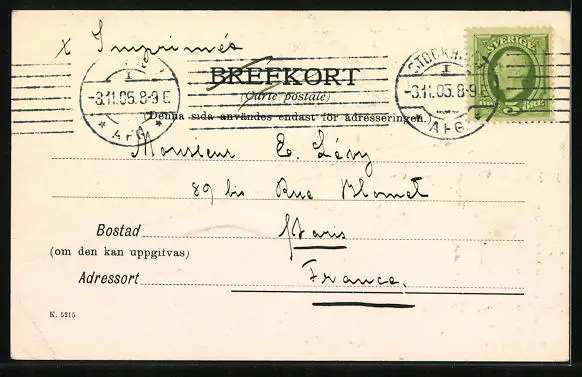 x Imprimés
BREFKORT
(Carte postale)
(Denna sida användes endast för adresseringen.)
-3.11.05.8-9 E
AFG.
STOCKH
1
-3.11.05.8-9 E
AFG.
SVERIGE
5 ÖRE
Monsieur E. Lévy
89 bis Rue Blomet
Bostad Paris
(om den kan uppgifvas)
Adressort France.
K. 5215